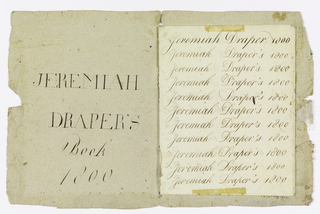 JEREMIAH
DRAPER'S
Book
1800
Jeremiah Draper 1800
Jeremiah Draper's 1800
Jeremiah Draper's 1800
Jeremiah Draper's 1800
Jeremiah Draper's 1800
Jeremiah Draper's 1800
Jeremiah Draper's 1800
Jeremiah Draper's 1800
Jeremiah Draper's 1800
Jeremiah Draper's 1800
Jeremiah Draper's 1800